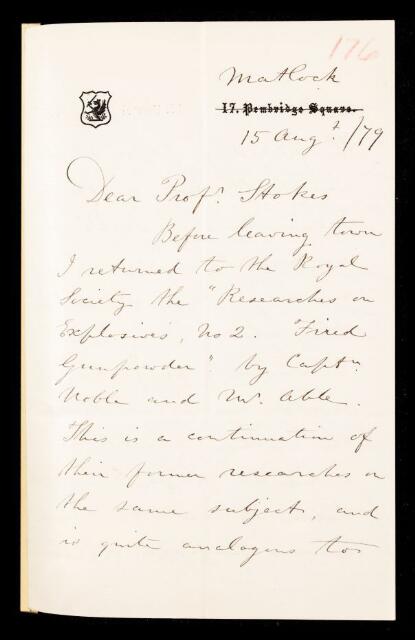 176
Matlock
17. Pembridge Square.
15 Augt./79
Dear Profr. Stokes
Before leaving town
I returned to the Royal
Society the "Researches on
Explosives, No 2. Fired
Gunpowder" by Captn.
Noble and Mr. Able.
This is a continuation of
their former researches on
the same subject, and
is quite analogous to